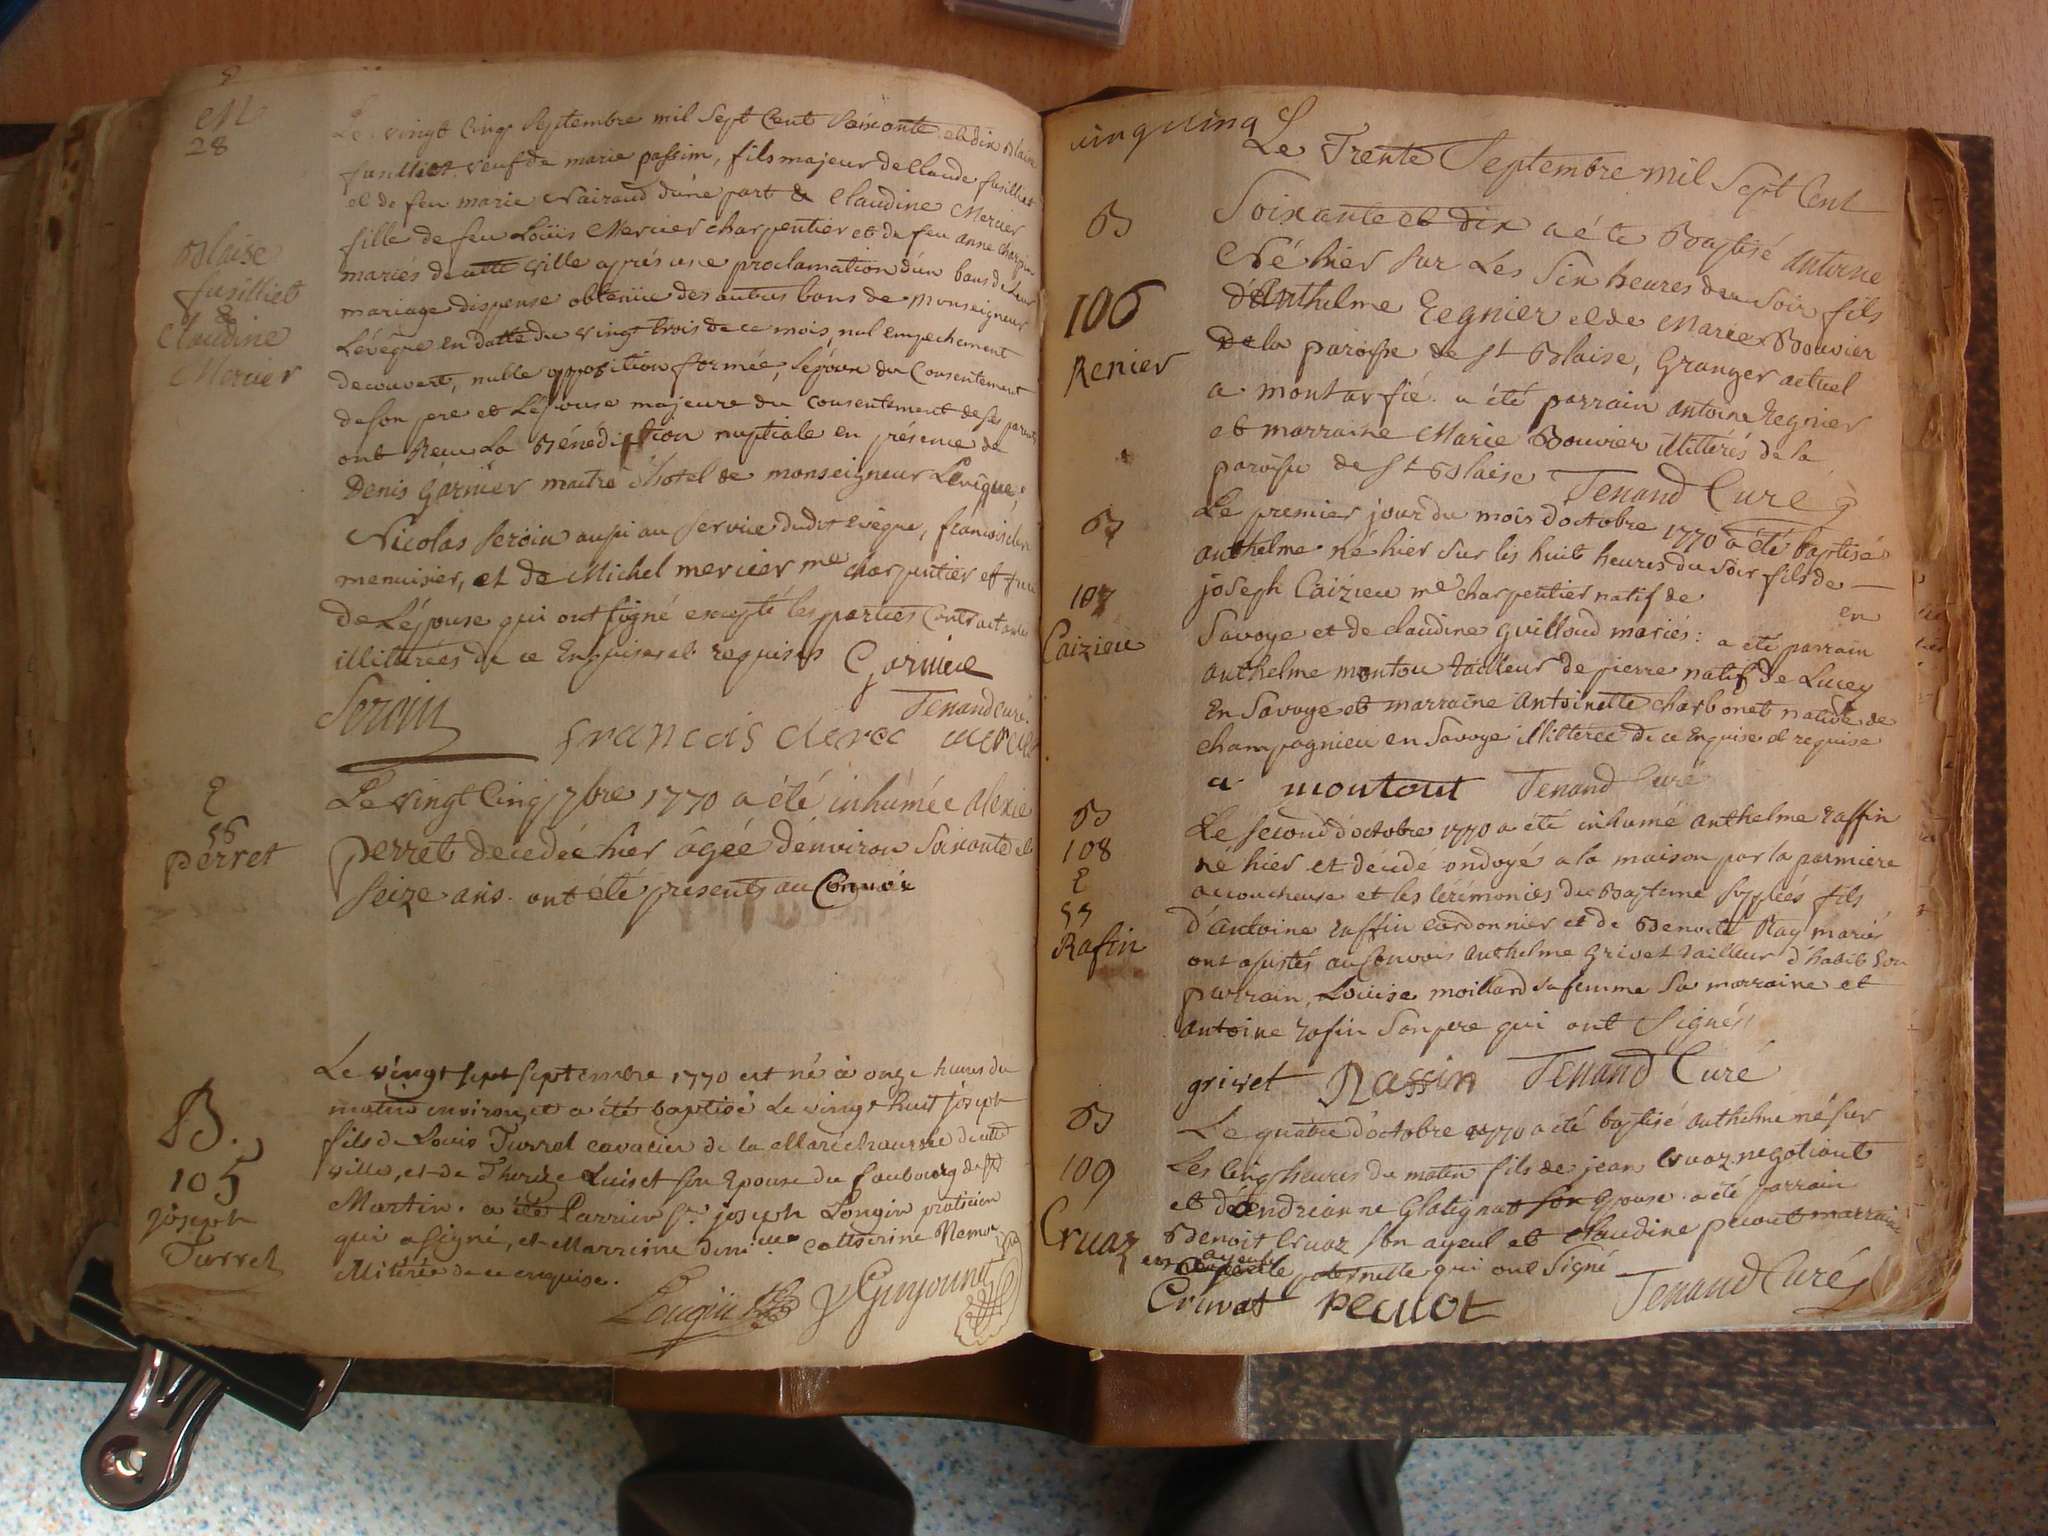 M
28
Blaise
fusilliet
&
Claudine
Mercier
Le vingt cinq Septembre mil Sept Cent Soixante et dix Blaise
fusilliet veuf de marie passim, fils majeur de Claude fusilliet
et de feu marie Nairaud d'une part & Claudine Mercier
fille de feu Loüis Mercier charpentier et de feu anne charpin
mariés de cette ville après une proclamation d'un bans de Leur
mariage dispense obtenüe des autres bans de Monseigneur
L'évêque en datte du vingt trois de ce mois, nul empechement
decouvert, nulle opposition formée, L'époux du Consentement
de son pere et L'épouse majeure du consentement de ses parents
ont Reçu La Bénédiction nuptiale en présence de
Denis Garnier maitre d'hotel de monseigneur L'evêque,
Nicolas Seroin aussi au service dudit evêque, francois
menuisier, et de Michel mercier me charpentier et
de L'épouse qui ont signé excepté les parties Contractantes
illitérées de ce Enquises et requises Garnier
Seroin Tenand curé
francois clerc mercier
E
56
perret
Le vingt Cinq 7bre 1770 a été inhumée Alexie
perret decedée hier âgée d'environ Soixante et
seize ans. ont été présents au Convoi
B.
105
joseph
Turrel
Le vingt sept septembre 1770 est né à onze heures du
matin environ, et a été baptisé Le vingt huit joseph
fils de Louis Turrel cavalier de la Maréchaussée de cette
ville, et de Therese Luiset son Epouse du faubourg de St
Martin. a été Parrain Sr. joseph Longin praticien
qui a signé, et Marraine demlle catherine
illitérée de ce enquise.
Longin Guyounet
cinq cinq
B
106
Renier
Le Trente Septembre mil Sept Cent
Soixante et dix a été Baptisé antoine
Né hier sur Les Six heures du Soir fils
d'Anthelme Regnier et de Marie Bouvier
de la paroisse de St Blaise, Granger actuel
a montarfié. a été parrain antoine Regnier
et marraine Marie Bouvier illitérés de la
paroisse de St Blaise Tenand Curé
B
107
Caizieu
Le premier jour du mois d'octobre 1770 a été baptisé
anthelme né hier sur les huit heures du soir fils de
joseph Caizieu me charpentier natif de en
Savoye et de claudine guilloud mariés: a été parrain
anthelme montou tailleur de pierre natif de Lucey
En Savoye et marraine antoinette charbonet native de
champagnieu en Savoye illitérée de ce Enquise et requise
a moutout Tenand Curé
B
108
E
57
Rafin
Le second d'octobre 1770 a été inhumé anthelme raffin
né hier et décédé ondoyé a la maison par la parmiere
accoucheuse et les cérémonies du Bapteme suppléés fils
d'antoine raffin cordonnier et de Benoite Ray mariés
ont assistés au Convoi anthelme Grivet tailleur d'habit Son
parrain, Louise moillard sa femme Sa marraine et
antoine rafin son pere qui ont signés
grivet Raffin Tenand Curé
B
109
Cruaz
Le quatre d'octobre 1770 a été baptisé anthelme né sur
Les cinq heures du matin fils de jean Cruaz negotiant
et d'andrianne Glatignat son Epouse a été parrain
Benoit Cruaz son ayeul et claudine peciout marraine
ayeule paternelle qui ont Signé
Cruvat peciiot Tenand Curé